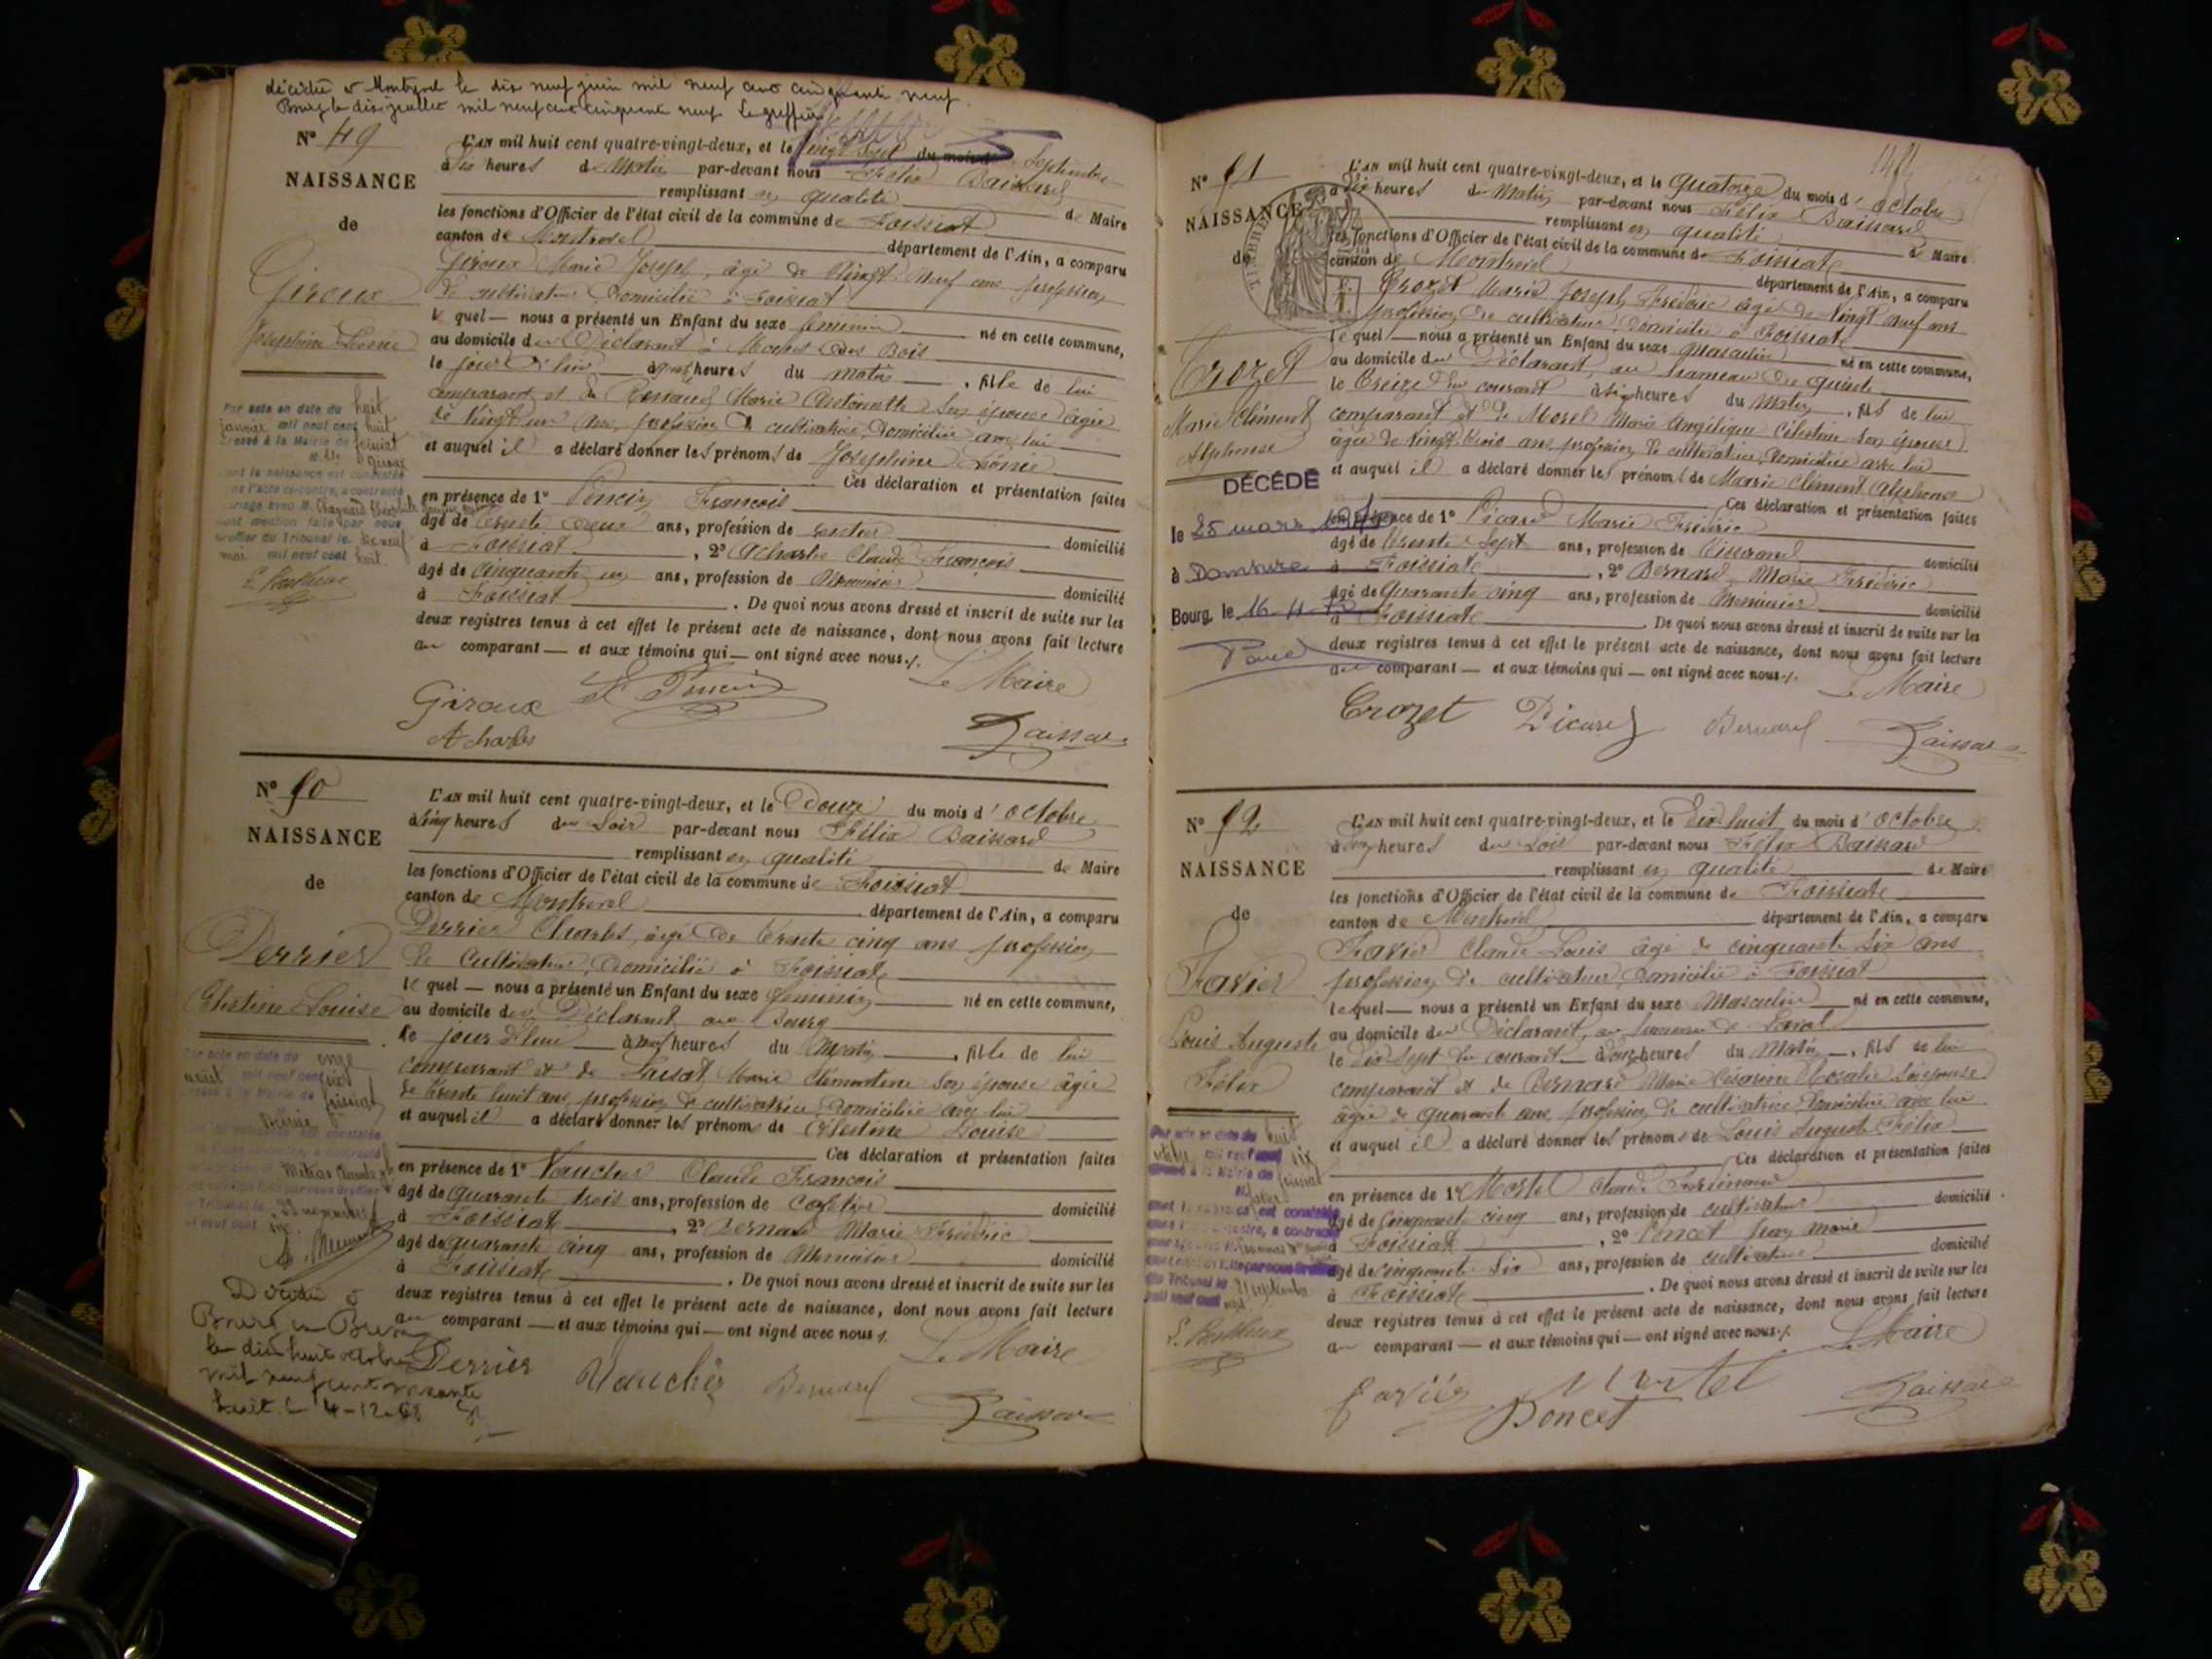 décédée à Montrevel le dix neuf juin mil neuf cent cinquante neuf
Bourg le dix juillet mil neuf cent cinquante neuf Le greffier
N° 49
NAISSANCE
de
Giroux
Joséphine Léonie
Par acte en date du huit
janvier mil neuf cent huit
dressé à la Mairie de foissiat
M lle Giroux
dont la naissance est constatée
dans l'acte ci-contre, a contracté
mariage avec M. Chagnard
dont mention faite par nous
Greffier du Tribunal le dix neuf
mai mil neuf cent huit.
L'AN mil huit cent quatre-vingt-deux, et le vingt sept du mois de Septembre
à Six heures du Matin par-devant nous Félix Baissard
remplissant en qualité de Maire
les fonctions d'Officier de l'état civil de la commune de Foissiat
canton de Montrevel département de l'Ain, a comparu
Giroux Marie Joseph, âgé de Vingt Neuf ans profession
de cultivateur, Domicilié à Foissiat
le quel — nous a présenté un Enfant du sexe féminin né en cette commune,
au domicile du Déclarant à Mores des Bois
le jour d'hier à heures du matin, fille de lui
comparant et de Renaud Marie Antoinette Son épouse âgée
de Vingt un ans, profession de cultivatrice, Domiciliée avec lui
et auquel il a déclaré donner les prénoms de Joséphine Léonie
Ces déclaration et présentation faites
en présence de 1° Poncin François
âgé de trente deux ans, profession de rentier domicilié
à Foissiat, 2° Acharles Claude François
âgé de cinquante un ans, profession de Menuisier domicilié
à Foissiat. De quoi nous avons dressé et inscrit de suite sur les
deux registres tenus à cet effet le présent acte de naissance, dont nous avons fait lecture
au comparant — et aux témoins qui — ont signé avec nous ./.
Le Maire
Giroux F Poncin
Acharles Baissard
N° 50
NAISSANCE
de
Derrier
Célestine Louise
Par acte en date du onze
août mil neuf cent six
dressé à la Mairie de foissiat
Derrier
dont la naissance est constatée
Mitras Claude
23 novembre
mil neuf cent six
Décédée à
Bourg en Bresse
le dix huit octobre
mil neuf cent soixante
huit. le 4-12-68
L'AN mil huit cent quatre-vingt-deux, et le Douze du mois d'octobre
à cinq heures du Soir par-devant nous Félix Baissard
remplissant en qualité de Maire
les fonctions d'Officier de l'état civil de la commune de Foissiat
canton de Montrevel département de l'Ain, a comparu
Derrier Charles, âgé de trente cinq ans profession
de cultivateur, Domicilié à Foissiat
le quel — nous a présenté un Enfant du sexe féminin né en cette commune,
au domicile du Déclarant au Bourg
le jour d'hui à heures du Matin, fille de lui
comparant et de Laisat Marie Clémentine Son épouse âgée
de trente huit ans, profession de cultivatrice, Domiciliée avec lui
et auquel il a déclaré donner les prénoms de Célestine Louise
Ces déclaration et présentation faites
en présence de 1° Vaucher Claude François
âgé de quarante trois ans, profession de Cafetier domicilié
à Foissiat, 2° Bernard Marie Frédéric
âgé de quarante cinq ans, profession de Menuisier domicilié
à Foissiat. De quoi nous avons dressé et inscrit de suite sur les
deux registres tenus à cet effet le présent acte de naissance, dont nous avons fait lecture
au comparant — et aux témoins qui — ont signé avec nous ./.
Le Maire
Derrier Vaucher Bernard Baissard
N° 51
NAISSANCE
de
TIMBRE
Crozet
Marie Clément
Alphonse
DÉCÉDÉ
le 25 mars
à Domsure
Bourg, le 16-11-
L'AN mil huit cent quatre-vingt-deux, et le Quatorze du mois d'octobre
à Dix heures du Matin par-devant nous Félix Baissard
remplissant en qualité de Maire
les fonctions d'Officier de l'état civil de la commune de Foissiat
canton de Montrevel département de l'Ain, a comparu
Crozet Marie Joseph Frédéric âgé de Vingt neuf ans
profession de cultivateur Domicilié à Foissiat
le quel — nous a présenté un Enfant du sexe Masculin né en cette commune,
au domicile du Déclarant, au hameau de Quinte
le treize du courant à six heures du Matin, fils de lui
comparant et de Morel Marie Angélique Célestine Son épouse
âgée de Vingt trois ans, profession de cultivatrice, Domiciliée avec lui
et auquel il a déclaré donner les prénoms de Marie Clément Alphonse
Ces déclaration et présentation faites
en présence de 1° Picard Marie Frédéric
âgé de trente Sept ans, profession de Tisserand domicilié
à Foissiat, 2° Bernard Marie Frédéric
âgé de Quarante cinq ans, profession de Menuisier domicilié
à Foissiat. De quoi nous avons dressé et inscrit de suite sur les
deux registres tenus à cet effet le présent acte de naissance, dont nous avons fait lecture
au comparant — et aux témoins qui — ont signé avec nous ./.
Le Maire
Crozet Picard Bernard Baissard
N° 52
NAISSANCE
de
Favier
Louis Auguste
Félix
Par acte en date du huit
octobre mil neuf cent six
dressé à la Mairie de foissiat
M. favier
dont la naissance est constatée
dans l'acte ci-contre, a contracté
du Tribunal le 21 septembre
mil neuf cent
L'AN mil huit cent quatre-vingt-deux, et le Dix huit du mois d'octobre
à heures du Soir par-devant nous Félix Baissard
remplissant en qualité de Maire
les fonctions d'Officier de l'état civil de la commune de Foissiat
canton de Montrevel département de l'Ain, a comparu
Favier Claude Louis âgé de cinquante Six ans
profession de cultivateur, Domicilié à Foissiat
le quel — nous a présenté un Enfant du sexe Masculin né en cette commune,
au domicile du Déclarant, au hameau de
le Dix Sept du courant à onze heures du Matin, fils de lui
comparant et de Bernard Marie Césarine Rosalie Son épouse
âgée de quarante ans, profession de cultivatrice, Domiciliée avec lui
et auquel il a déclaré donner les prénoms de Louis Auguste Félix
Ces déclaration et présentation faites
en présence de 1° Martel Claude Ferdinand
âgé de Cinquante cinq ans, profession de cultivateur domicilié
à Foissiat, 2° Poncet Jean Marie
âgé de cinquante Six ans, profession de cultivateur domicilié
à Foissiat. De quoi nous avons dressé et inscrit de suite sur les
deux registres tenus à cet effet le présent acte de naissance, dont nous avons fait lecture
au comparant — et aux témoins qui — ont signé avec nous ./.
Le Maire
Favier Martel
Poncet Baissard